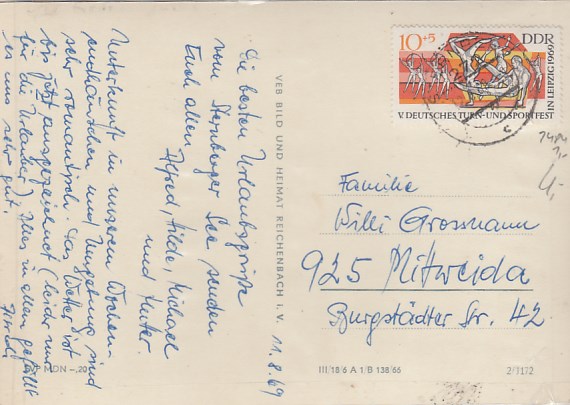 Die besten Urlaubsgrüße
vom Sternberger See senden
Euch allen
Alfred, Hilde, Michael
und Mutter.
11.8.69
Unterkunft in unserem Wochen-
endhäuschen und Umgebung sind
sehr romantisch. Das Wetter ist
bis jetzt ausgezeichnet (leider nur
für die Urlauber). Alles in allem gefällt
es uns sehr gut.
VEB BILD UND HEIMAT REICHENBACH I. V.
MDN –,20
10+5 DDR
V. DEUTSCHES TURN-UND SPORTFEST
IN LEIPZIG 1969
Familie
Willi Grossmann
925 Mittweida
Burgstädter Str. 42
III/18/6 A 1/B 138/66
2/1172